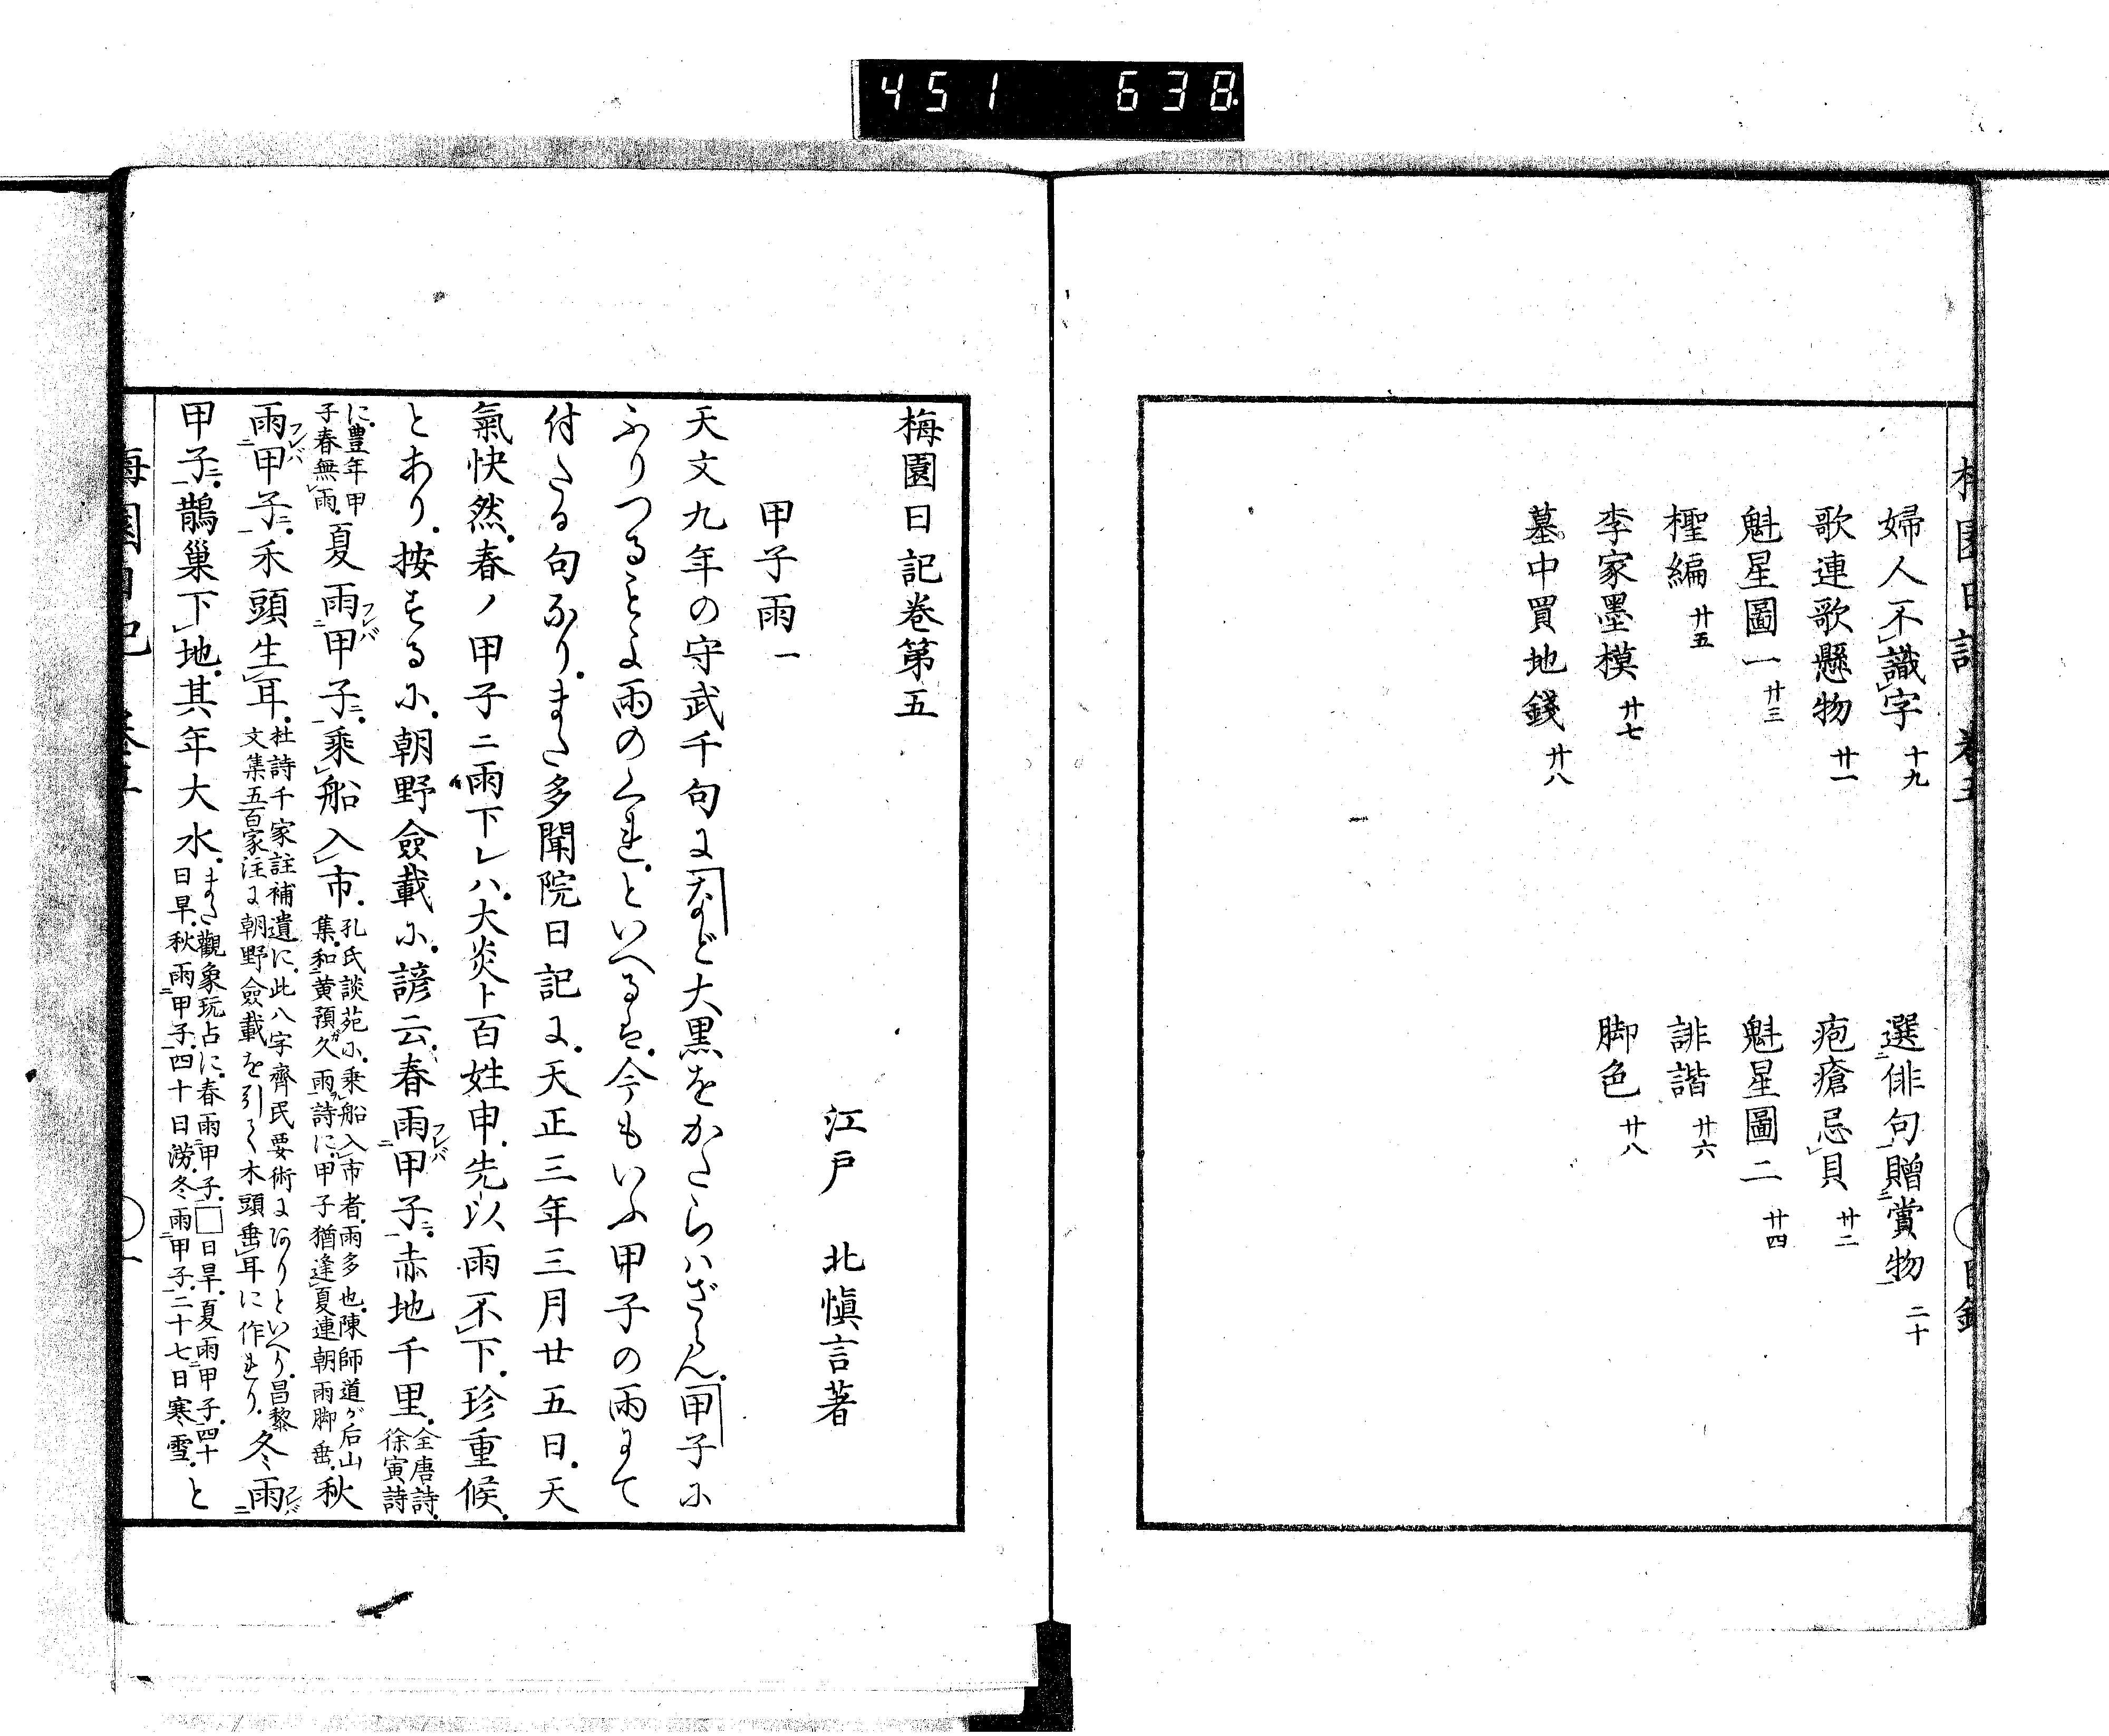 451 638
婦人不識字 十九
選俳句贈賞物 二十
歌連歌懸物 廿一
疱瘡忌貝 廿二
魁星圖一 廿三
魁星圖二 廿四
檉編 廿五
誹諧 廿六
李家墨模 廿七
脚色 廿八
墓中買地錢 廿八
梅園日記卷第五
江戸 北愼言著
甲子雨一
天文九年の守武千句に「なと大黒をかたらハざらん。「甲子に
ふりつることよ雨のくれ。といへるは。今もいふ甲子の雨にて
付たる句なり。また多聞院日記に。天正三年三月廿五日。天
氣快然。春ノ甲子ニ雨下レハ。大炎ト百姓申。先以雨不下。珍重候。
とあり。按ずるに。朝野僉載に。諺云。春雨フレバ甲子ニ。赤地千里。全唐詩。徐寅詩
に。豊年甲子春無雨。夏雨フレバ甲子ニ。乘船入市。孔氏談苑に。乘船入市者。雨多也。陳師道ガ后山集。和黄預久雨詩に。甲子猶逢夏連朝雨脚垂。秋
雨フレバ甲子ニ。禾頭生耳。杜詩千家註補遺に。此八字齊民要術にありといへり。昌黎文集五百家注に朝野僉載を引て木頭垂耳に作れり。冬雨フレバ
甲子ニ。鵲巢下地。其年大水。また觀象玩占に。春雨甲子。□日旱。夏雨甲子。四十日旱。秋雨甲子。四十日澇。冬雨甲子。二十七日寒雪。と